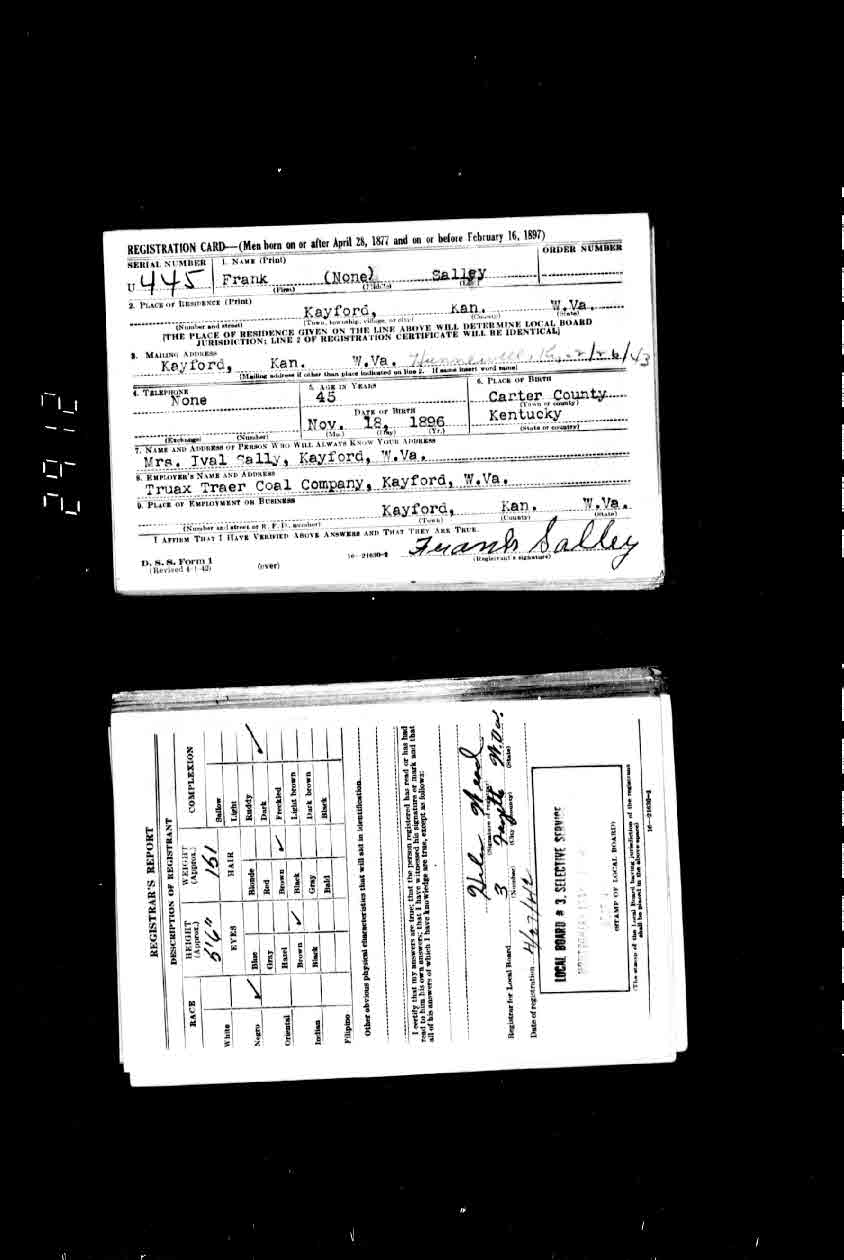 REGISTRATION CARD—(Men born on or after April 28, 1877 and on or before February 16, 1897)
SERIAL NUMBER 1. NAME (Print) ORDER NUMBER
U 445 Frank (None) Salley
(First) (Middle) (Last)
2. PLACE OF RESIDENCE (Print)
Kayford, Kan. W.Va.
(Number and street) (Town, township, village, or city) (County) (State)
[THE PLACE OF RESIDENCE GIVEN ON THE LINE ABOVE WILL DETERMINE LOCAL BOARD
JURISDICTION; LINE 2 OF REGISTRATION CERTIFICATE WILL BE IDENTICAL]
3. MAILING ADDRESS
Kayford, Kan. W.Va. Hunnewell, Ky. 2/26/43
[Mailing address if other than place indicated on line 2. If same insert word same]
4. TELEPHONE 5. AGE IN YEARS 6. PLACE OF BIRTH
None 45 Carter County
(Town or county)
DATE OF BIRTH Kentucky
Nov. 18, 1896
(Exchange) (Number) (Mo.) (Day) (Yr.) (State or country)
7. NAME AND ADDRESS OF PERSON WHO WILL ALWAYS KNOW YOUR ADDRESS
Mrs. Ival Sally, Kayford, W.Va.
8. EMPLOYER'S NAME AND ADDRESS
Truax Traer Coal Company, Kayford, W.Va.
9. PLACE OF EMPLOYMENT OR BUSINESS
Kayford, Kan. W.Va.
(Number and street or R. F. D. number) (Town) (County) (State)
I AFFIRM THAT I HAVE VERIFIED ABOVE ANSWERS AND THAT THEY ARE TRUE.
Frank Salley
D. S. S. Form 1 16—21630-2 (Registrant's signature)
(Revised 4-1-42) (over)
2912
REGISTRAR'S REPORT
DESCRIPTION OF REGISTRANT
RACE HEIGHT (Approx.) WEIGHT (Approx.) COMPLEXION
5'6" 151
White EYES HAIR Sallow
Light
Negro ✓ Blue Blonde Ruddy
Gray Red Dark ✓
Oriental Hazel Brown ✓ Freckled
Brown ✓ Black Light brown
Indian Black Gray Dark brown
Bald Black
Filipino
Other obvious physical characteristics that will aid in identification
I certify that my answers are true; that the person registered has read or has had
read to him his own answers; that I have witnessed his signature or mark and that
all of his answers of which I have knowledge are true, except as follows:
(Signature of registrar)
Registrar for Local Board 3 W.Va.
(Number) (City or county) (State)
Date of registration 4/27/42
LOCAL BOARD # 3. SELECTIVE SERVICE
(STAMP OF LOCAL BOARD)
(The stamp of the Local Board having jurisdiction of the registrant
shall be placed in the above space)
16—21630-2